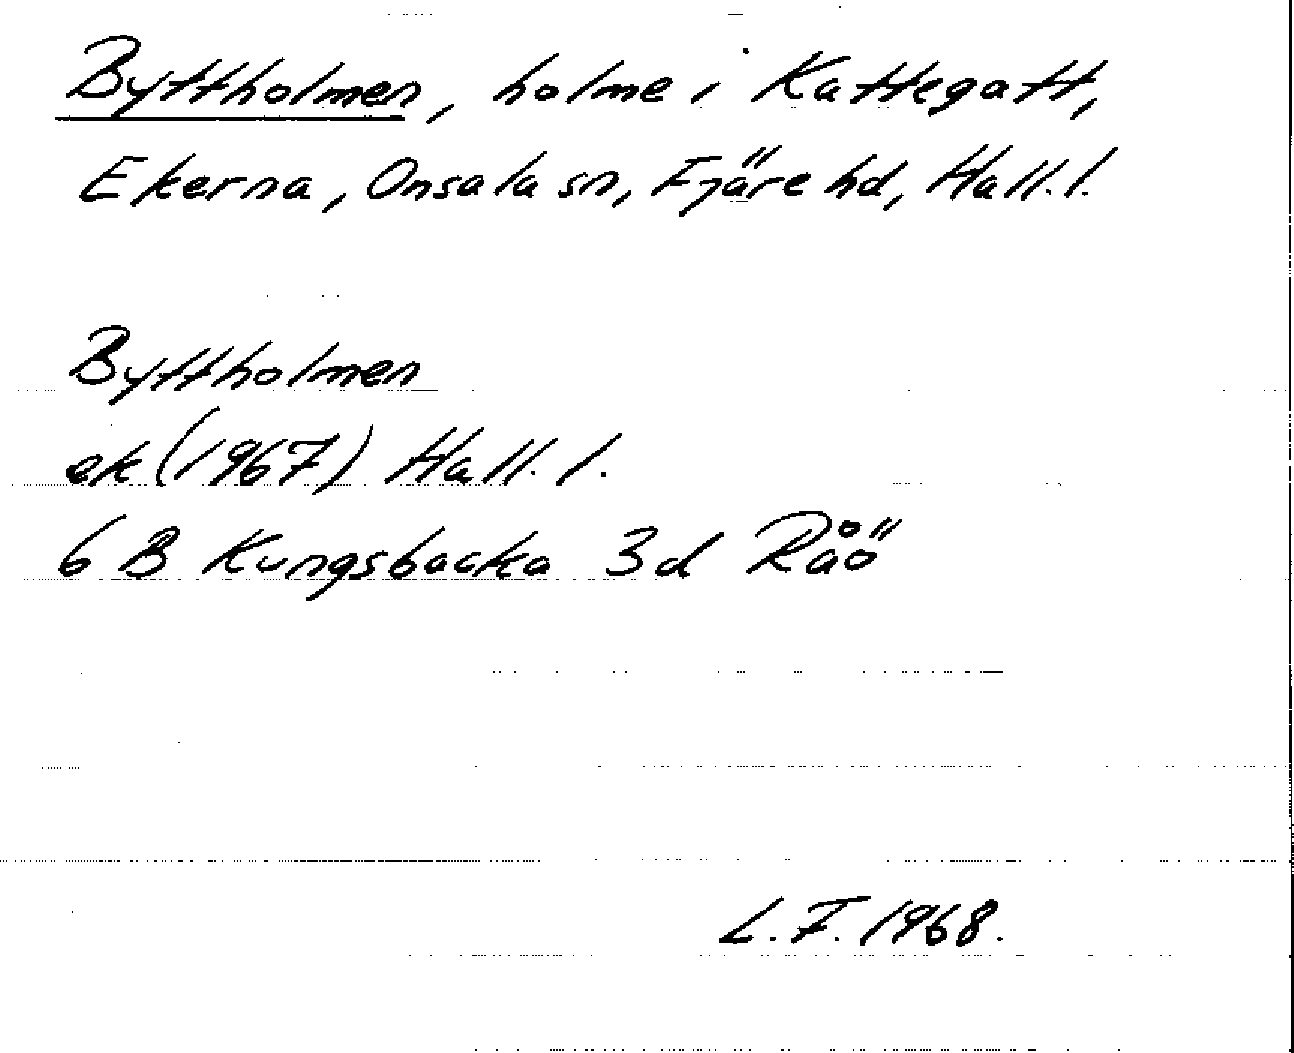 Byttholmen, holme i Kattegatt,
Ekerna, Onsala sn, Fjäre hd, Hall. l.
Byttholmen
ek (1967) Hall. l.
6 B Kungsbacka 3d Råö
L. F. 1968.